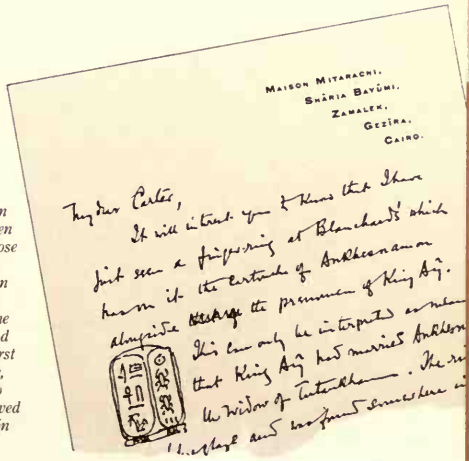 MAISON MITARACHI,
SHÂRIA BAYÛMI,
ZAMALEK,
GEZÎRA,
CAIRO.
My dear Carter,
It will interest you to know that I have
just seen a finger-ring at Blanchard's which
has on it the cartouche of Ankhesnamon
alongside the prenomen of King Aÿ.
This can only be interpreted as
that King Aÿ had married
the widow of Tutankhamun. The
and was found somewhere